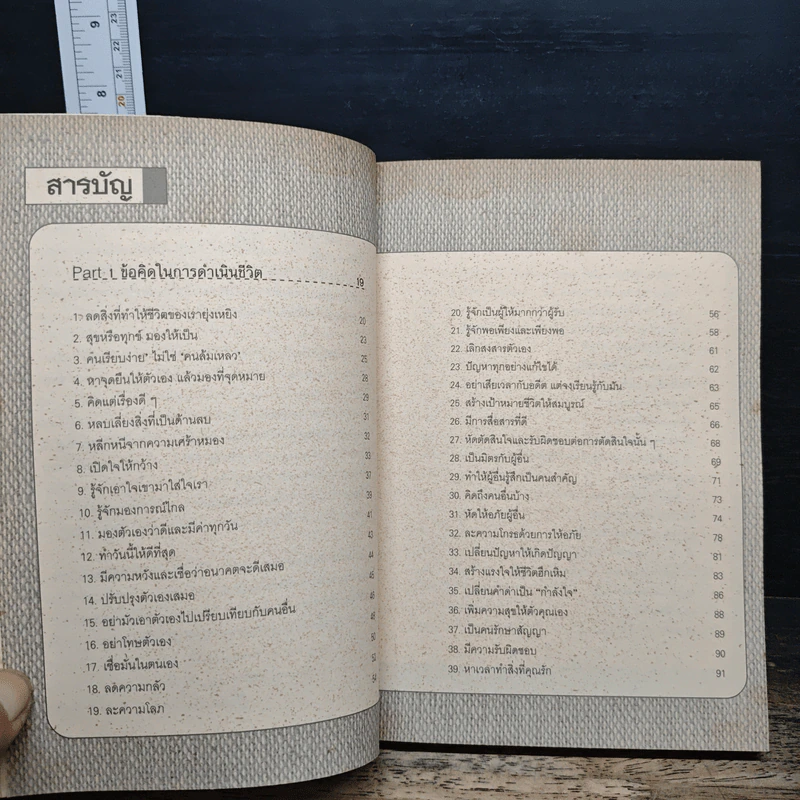 สารบัญ
Part 1 ข้อคิดในการดำเนินชีวิต 19
1. ลดสิ่งที่ทำให้ชีวิตของเรายุ่งเหยิง 20
2. สุขหรือทุกข์ มองให้เป็น 23
3. คนเรียบง่าย" ไม่ใช่ "คนล้มเหลว" 25
4. หาจุดยืนให้ตัวเอง แล้วมองที่จุดหมาย 28
5. คิดแต่เรื่องดี ๆ 29
6. หลบเลี่ยงสิ่งที่เป็นด้านลบ 31
7. หลีกหนีจากความเศร้าหมอง 32
8. เปิดใจให้กว้าง 33
9. รู้จักเอาใจเขามาใส่ใจเรา 37
10. รู้จักมองการณ์ไกล 39
11. มองตัวเองว่าดีและมีค่าทุกวัน 41
12. ทำวันนี้ให้ดีที่สุด 43
13. มีความหวังและเชื่อว่าอนาคตจะดีเสมอ 44
14. ปรับปรุงตัวเองเสมอ
15. อย่ามัวเอาตัวเองไปเปรียบเทียบกับคนอื่น
16. อย่าโทษตัวเอง
17. เชื่อมั่นในตนเอง
18. ลดความกลัว
19. ละความโลภ
20. รู้จักเป็นผู้ให้มากกว่าผู้รับ 56
21. รู้จักพอเพียงและเพียงพอ 58
22. เลิกสงสารตัวเอง 61
23. ปัญหาทุกอย่างแก้ไขได้ 62
24. อย่าเสียเวลากับอดีต แต่จงเรียนรู้กับมัน 63
25. สร้างเป้าหมายชีวิตให้สมบูรณ์ 65
26. มีการสื่อสารที่ดี 66
27. หัดตัดสินใจและรับผิดชอบต่อการตัดสินใจนั้น ๆ 68
28. เป็นมิตรกับผู้อื่น 69
29. ทำให้ผู้อื่นรู้สึกเป็นคนสำคัญ 71
30. คิดถึงคนอื่นบ้าง 73
31. หัดให้อภัยผู้อื่น 74
32. ละความโกรธด้วยการให้อภัย 78
33. เปลี่ยนปัญหาให้เกิดปัญญา 81
34. สร้างแรงใจให้ชีวิตฮึกเหิม 83
35. เปลี่ยนคำด่าเป็น "กำลังใจ" 86
36. เพิ่มความสุขให้ตัวคุณเอง 88
37. เป็นคนรักษาสัญญา 89
38. มีความรับผิดชอบ 90
39. หาเวลาทำสิ่งที่คุณรัก 91